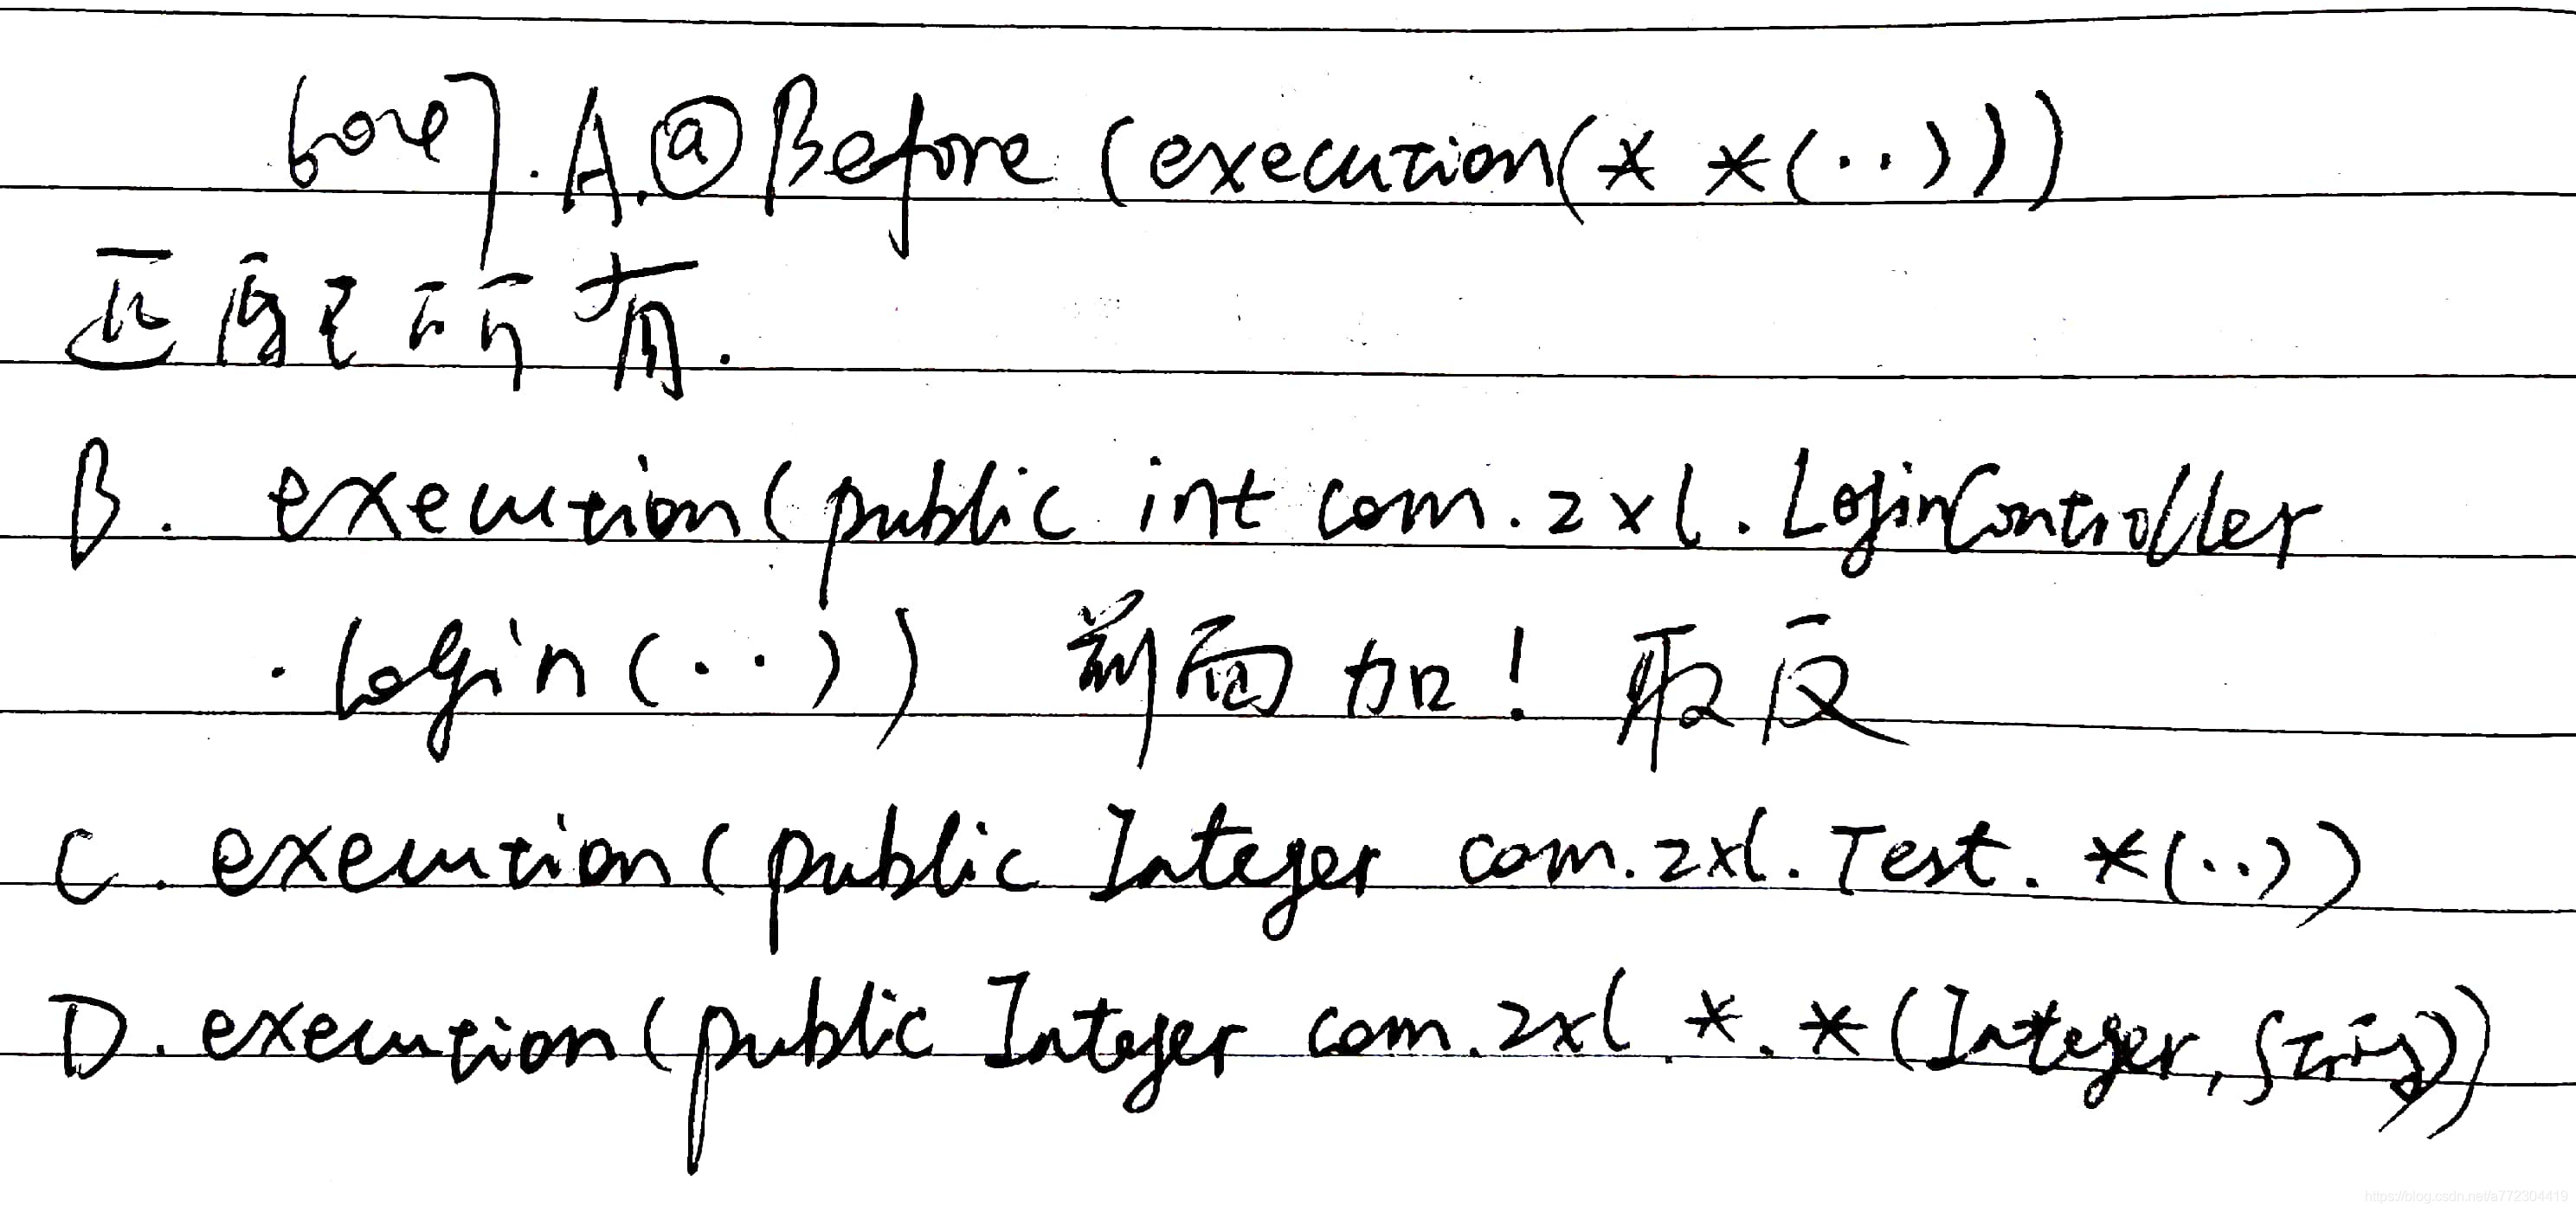 6047. A.@Before (execution(* *(..)))
匹配所有.
B. execution(public int com.zxl.LoginController
.login(..)) 前面加! 取反
C. execution(public Integer com.zxl.Test.*(..))
D. execution(public Integer com.zxl.*.*(Integer,String))
https://blog.csdn.net/a772304419